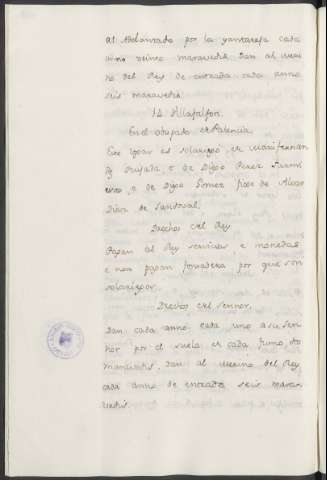 al Adelantado por la yantareja cada
anno veinte maravedis dan al meri
no del Rey de entrada cada anno
seis maravedis.
Villafalfon
En el obispado de Palencia.
Este logar es solariego, de
Quijada, e de Diego Perez Sarmi
ento, e de Diego Gomez fijo de Alvar
Diaz de Sandoval.
Derechos del Rey
Pagan al Rey servicios e monedas
e non pagan fonsadera por que son
solariegos.
Derechos del Sennor.
Dan cada anno cada uno a su Sen
nor por el suelo de cada fumo
maravedis, dan al merino del Rey
cada anno de entrada seis marav
edis.